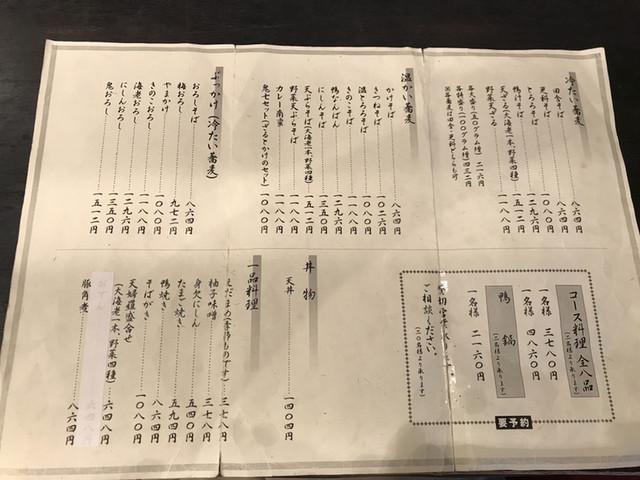 冷たい蕎麦
田舎そば 八六四円
更科そば 八六四円
とろろそば 一二九六円
鴨汁そば
天ざる(大海老一本、野菜四種) 一五一二円
野菜天ざる 一一八八円
各大盛り(五〇グラム増) 二一六円
各特盛り(一〇〇グラム増) 四三二円
温かい蕎麦
かけそば 八六四円
きつねそば 一〇二六円
温とろろそば 一〇八〇円
きのこそば 一一八八円
鴨なんばん 一二九六円
にしんそば 一三五〇円
天ぷらそば(大海老一本、野菜四種) 一五一二円
野菜天ぷらそば 一一八八円
カレー南蛮 一一八八円
ぶっかけ(冷たい蕎麦)
おろしそば 八六四円
梅おろし 九七二円
やまかけ 一〇八〇円
きのこおろし 一一八八円
海老おろし 一二九六円
にしんおろし 一三五〇円
鬼おろし 一五一二円
コース料理 全八品
(二名様より承ります)
一名様 三七八〇円
一名様 四八六〇円
鴨鍋
(二名様より承ります)
一名様 二一六〇円
ご相談ください。
(二〇名様より承ります)
要予約
丼物
天丼 一四〇四円
一品料理
えだまめ(季節ものです) 三七八円
柚子味噌 三七八円
身欠にしん 五四〇円
たまご焼き 五九四円
鴨焼き 八六四円
そばがき 八六四円
天婦羅盛合せ 一〇八〇円
(大海老一本、野菜四種)
六四八円
豚角煮 八六四円